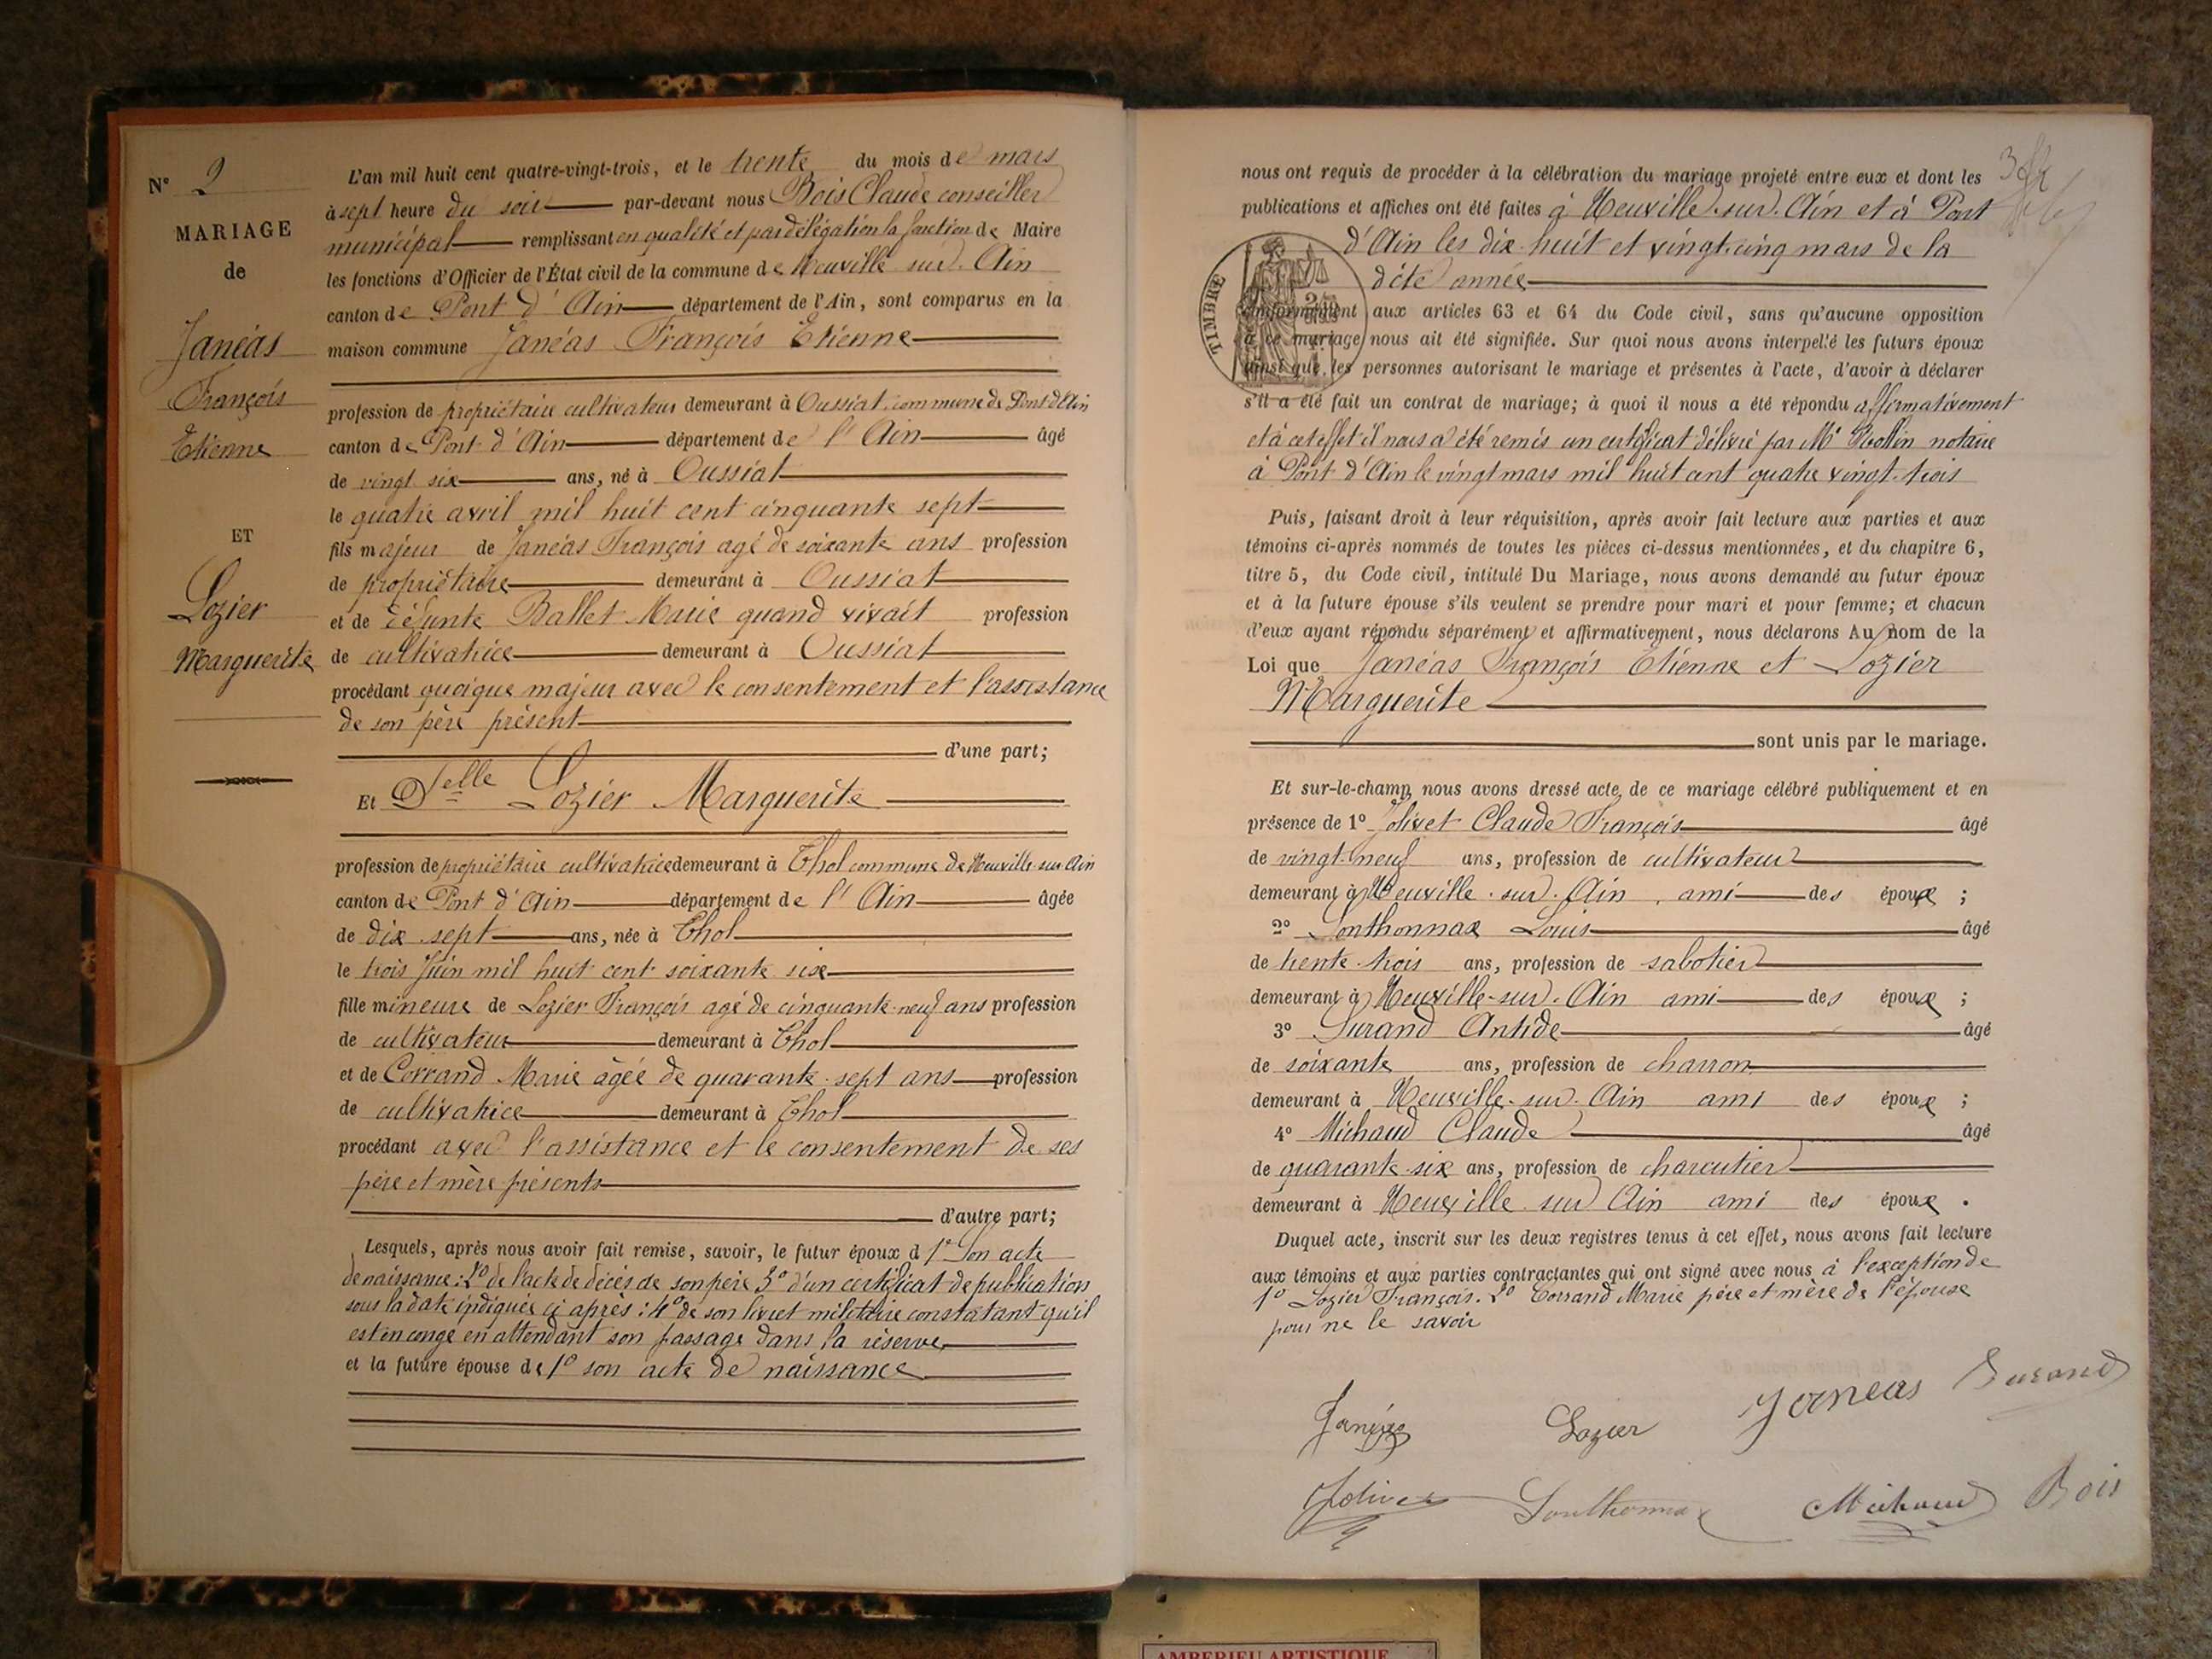 N° 2
MARIAGE
de
Janéas
François
Etienne
ET
Lozier
Marguerite
L'an mil huit cent quatre-vingt-trois, et le trente du mois de mars
à sept heure du soir par-devant nous Bois Claude conseiller
municipal remplissant en qualité et par délégation la fonction de Maire
les fonctions d'Officier de l'État civil de la commune de Neuville sur Ain
canton de Pont d'Ain département de l'Ain, sont comparus en la
maison commune Janéas François Etienne
profession de propriétaire cultivateur demeurant à Oussiat commune de Pont d'Ain
canton de Pont d'Ain département de l'Ain âgé
de vingt six ans, né à Oussiat
le quatre avril mil huit cent cinquante sept
fils majeur de Janéas François agé de soixante ans profession
de propriétaire demeurant à Oussiat
et de défunte Ballet Marie quand vivait profession
de cultivatrice demeurant à Oussiat
procédant quoique majeur avec le consentement et l'assistance
de son père présent
d'une part;
Et Delle Lozier Marguerite
profession de propriétaire cultivatrice demeurant à Thol commune de Neuville sur Ain
canton de Pont d'Ain département de l'Ain âgée
de dix sept ans, née à Thol
le trois Juin mil huit cent soixante six
fille mineure de Lozier François agé de cinquante neuf ans profession
de cultivateur demeurant à Thol
et de Corrand Marie âgée de quarante sept ans profession
de cultivatrice demeurant à Thol
procédant avec l'assistance et le consentement de ses
père et mère présents
d'autre part;
Lesquels, après nous avoir fait remise, savoir, le futur époux d 1° Son acte
de naissance: 2° de l'acte de décès de son père 3° d'un certificat de publication
sous la date indiquée ci après: 4° de son livret militaire constatant qu'il
est en congé en attendant son passage dans la réserve
et la future épouse de 1° son acte de naissance
nous ont requis de procéder à la célébration du mariage projeté entre eux et dont les
publications et affiches ont été faites à Neuville-sur-Ain et à Pont
d'Ain les dix-huit et vingt-cinq mars de la
dite année
TIMBRE
conformément aux articles 63 et 64 du Code civil, sans qu'aucune opposition
à ce mariage nous ait été signifiée. Sur quoi nous avons interpellé les futurs époux
ainsi que les personnes autorisant le mariage et présentes à l'acte, d'avoir à déclarer
s'il a été fait un contrat de mariage; à quoi il nous a été répondu affirmativement
et à cet effet il nous a été remis un certificat délivré par Me Rollin notaire
à Pont d'Ain le vingt mars mil huit cent quatre vingt-trois
Puis, faisant droit à leur réquisition, après avoir fait lecture aux parties et aux
témoins ci-après nommés de toutes les pièces ci-dessus mentionnées, et du chapitre 6,
titre 5, du Code civil, intitulé Du Mariage, nous avons demandé au futur époux
et à la future épouse s'ils veulent se prendre pour mari et pour femme; et chacun
d'eux ayant répondu séparément et affirmativement, nous déclarons Au nom de la
Loi que Janéas François Etienne et Lozier
Marguerite
sont unis par le mariage.
Et sur-le-champ, nous avons dressé acte de ce mariage célébré publiquement et en
présence de 1° Jolivet Claude François âgé
de vingt-neuf ans, profession de cultivateur
demeurant à Neuville-sur-Ain, ami des époux ;
2° Lonthonnax Louis âgé
de trente-trois ans, profession de sabotier
demeurant à Neuville-sur-Ain ami des époux ;
3° Durand Antide âgé
de soixante ans, profession de charron
demeurant à Neuville-sur-Ain ami des époux ;
4° Michaud Claude âgé
de quarante-six ans, profession de charcutier
demeurant à Neuville sur Ain ami des époux .
Duquel acte, inscrit sur les deux registres tenus à cet effet, nous avons fait lecture
aux témoins et aux parties contractantes qui ont signé avec nous à l'exception de
1° Lozier François. 2° Corrand Marie père et mère de l'épouse
pour ne le savoir
Janéas Lozier Janeas Durand
Jolivet Lonthonnax Michaud Bois
AMBERIEU ARTISTIQUE